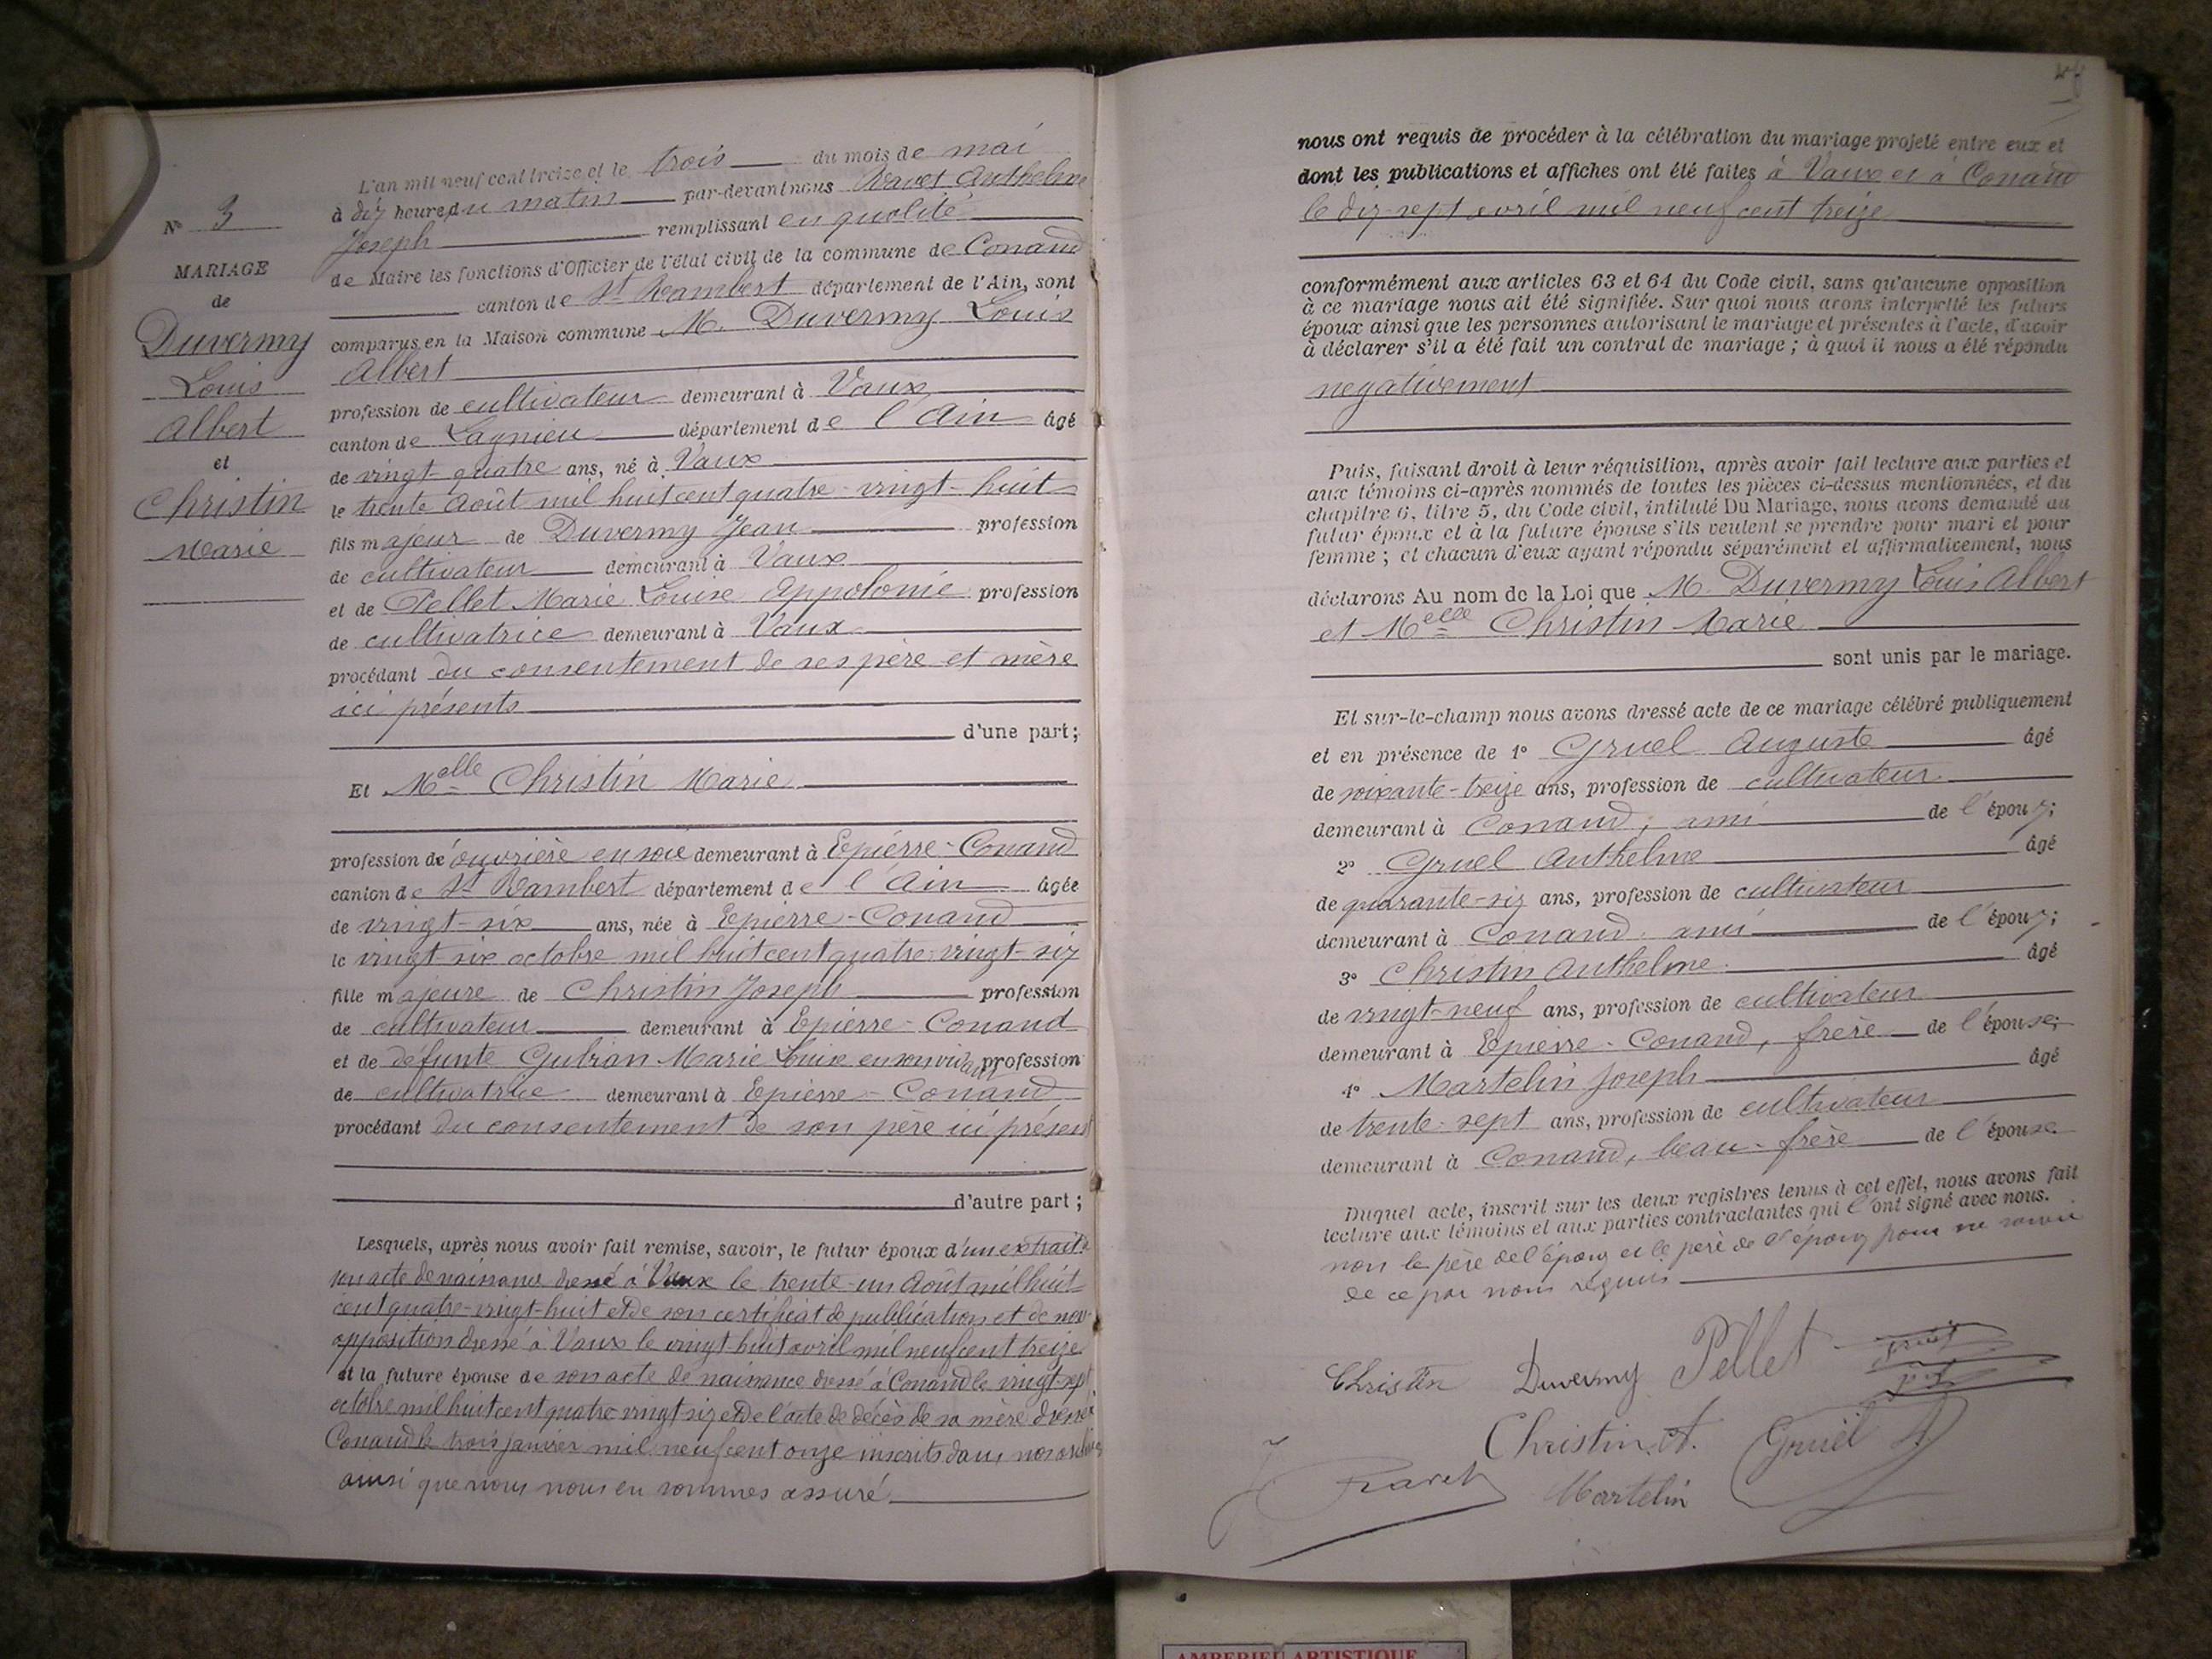 N° 3
MARIAGE
de
Duvermy
Louis
Albert
et
Christin
Marie
L'an mil neuf cent treize et le trois du mois de mai
à dix heures du matin par-devant nous Ravet Anthelme
Joseph remplissant en qualité
de Maire les fonctions d'Officier de l'état civil de la commune de Conand
canton de St Rambert département de l'Ain, sont
comparus en la Maison commune M. Duvermy Louis
Albert
profession de cultivateur demeurant à Vaux
canton de Lagnieu département de l'Ain âgé
de vingt-quatre ans, né à Vaux
le trente Août mil huit cent quatre-vingt-huit
fils majeur de Duvermy Jean profession
de cultivateur demeurant à Vaux
et de Pellet Marie Louise Appolonie profession
de cultivatrice demeurant à Vaux
procédant du consentement de ses père et mère
ici présents
d'une part;
Et Melle Christin Marie
profession de ouvrière en soie demeurant à Epierre-Conand
canton de St Rambert département de l'Ain âgée
de vingt-six ans, née à Epierre-Conand
le vingt-six octobre mil huit cent quatre-vingt-six
fille majeure de Christin Joseph profession
de cultivateur demeurant à Epierre-Conand
et de défunte Gubian Marie Louise en son vivant profession
de cultivatrice demeurant à Epierre-Conand
procédant du consentement de son père ici présent
d'autre part;
Lesquels, après nous avoir fait remise, savoir, le futur époux d'un extrait de
son acte de naissance dressé à Vaux le trente-un Août mil huit
cent quatre-vingt-huit et de son certificat de publication et de non
opposition dressé à Vaux le vingt-huit avril mil neuf cent treize
et la future épouse de son acte de naissance dressé à Conand le vingt sept
octobre mil huit cent quatre vingt six et de l'acte de décès de sa mère dressé à
Conand le trois janvier mil neuf cent onze inscrits dans nos archives
ainsi que nous nous en sommes assuré
nous ont requis de procéder à la célébration du mariage projeté entre eux et
dont les publications et affiches ont été faites à Vaux et à Conand
le dix-sept avril mil neuf cent treize
conformément aux articles 63 et 64 du Code civil, sans qu'aucune opposition
à ce mariage nous ait été signifiée. Sur quoi nous avons interpellé les futurs
époux ainsi que les personnes autorisant le mariage et présentes à l'acte, d'avoir
à déclarer s'il a été fait un contrat de mariage; à quoi il nous a été répondu
negativement
Puis, faisant droit à leur réquisition, après avoir fait lecture aux parties et
aux témoins ci-après nommés de toutes les pièces ci-dessus mentionnées, et du
chapitre 6, titre 5, du Code civil, intitulé Du Mariage, nous avons demandé au
futur époux et à la future épouse s'ils veulent se prendre pour mari et pour
femme; et chacun d'eux ayant répondu séparément et affirmativement, nous
déclarons Au nom de la Loi que M. Duvermy Louis Albert
et Melle Christin Marie
sont unis par le mariage.
Et sur-le-champ nous avons dressé acte de ce mariage célébré publiquement
et en présence de 1° Gruel Auguste âgé
de soixante-treize ans, profession de cultivateur
demeurant à Conand, ami de l'époux;
2° Gruel Anthelme âgé
de quarante-six ans, profession de cultivateur
demeurant à Conand, ami de l'époux;
3° Christin Anthelme âgé
de vingt-neuf ans, profession de cultivateur
demeurant à Epierre-Conand, frère de l'épouse;
4° Martelin Joseph âgé
de trente-sept ans, profession de cultivateur
demeurant à Conand, beau-frère de l'épouse
Duquel acte, inscrit sur les deux registres tenus à cet effet, nous avons fait
lecture aux témoins et aux parties contractantes qui l'ont signé avec nous.
non le père de l'époux et le père de l'époux pour ne savoir
de ce par nous requis
Christin Duvermy Pellet
Christin A. Gruel A
Ravet Martelin
AMBERIEU ARTISTIQUE